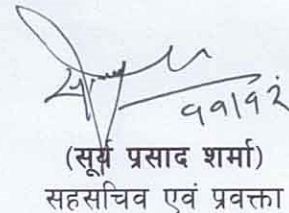 ११/१२
(सूर्य प्रसाद शर्मा)
सहसचिव एवं प्रवक्ता